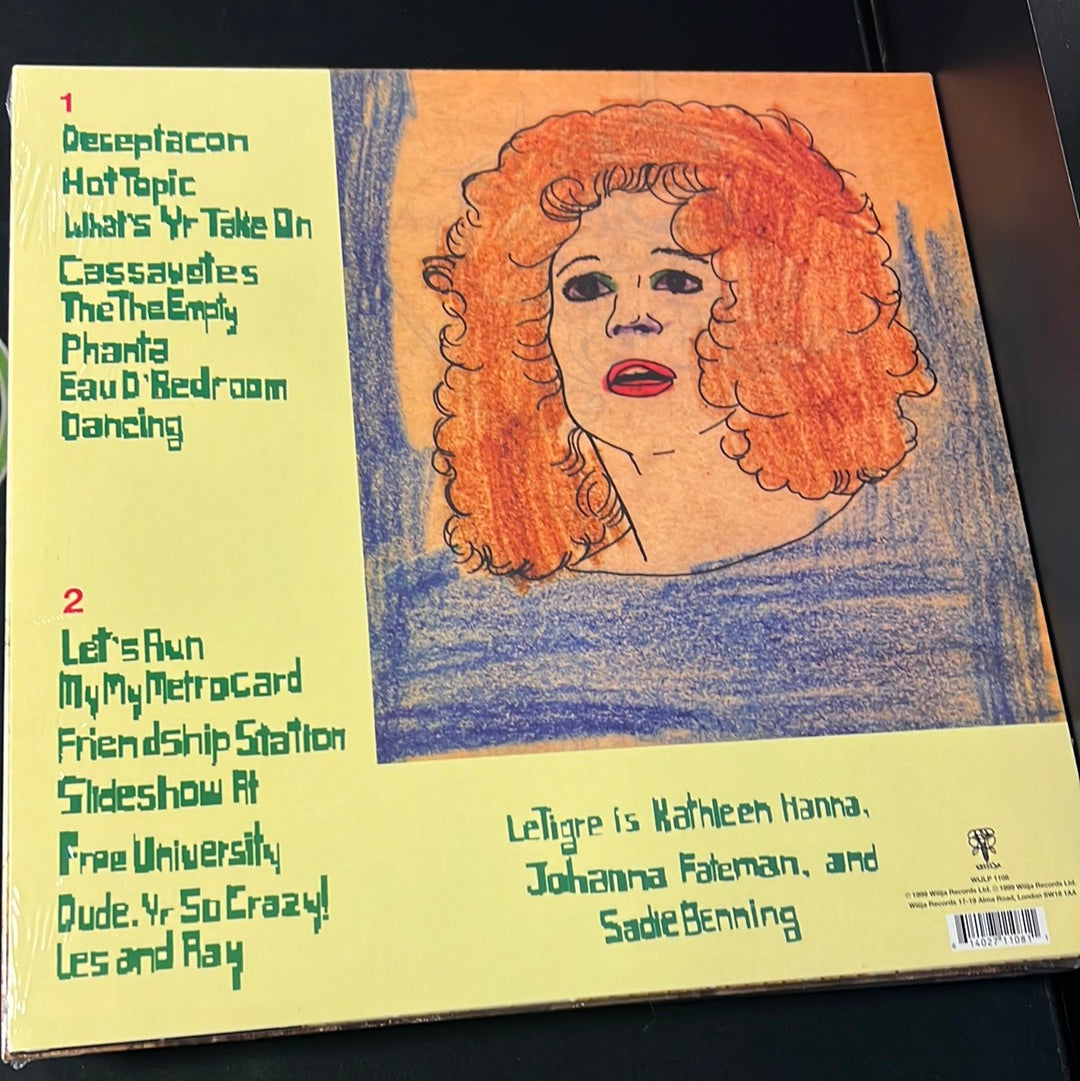 1
Deceptacon
Hot Topic
What's Yr Take On
Cassavetes
The The Empty
Phanta
Eau D'Bedroom
Dancing
2
Let's Run
My My Metrocard
Friendship Station
Slideshow At
Free University
Dude. Yr So Crazy!
Les and Ray
LeTigre is Kathleen Hanna,
Johanna Fateman, and
Sadie Benning
WULP 1108
℗ 1999 Wiiija Records Ltd. © 1999 Wiiija Records Ltd.
Wiiija Records 17-19 Alma Road, London SW18 1AA
6 14027 11081 1